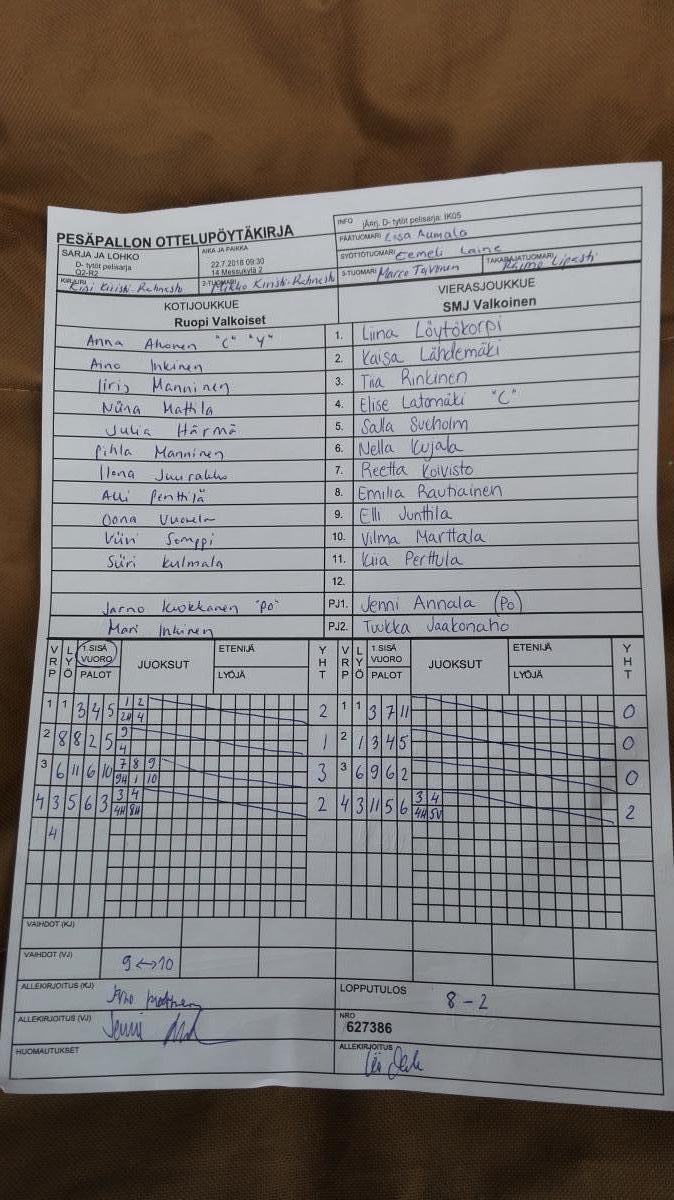 PESÄPALLON OTTELUPÖYTÄKIRJA
INFO jAnrj. D- tytöt pelisarja: IK05
SARJA JA LOHKO D- tytöt pelisarja O2-R2
AIKA JA PAIKKA 22.7.2018 09:30 14 Messukylä 2
PÄÄTUOMARI Aumala
SYÖTTÖTUOMARI Eemeli Laine
KIRJURI Kiristi-Rahnasto
2-TUOMARI Mikko Kiristi-Rahnasto
3-TUOMARI Marco
TAKARAJATUOMARI
KOTIJOUKKUE
Ruopi Valkoiset
VIERASJOUKKUE
SMJ Valkoinen
Anna Ahonen "C" "Y" 1. Liina Löytökorpi
Aino Inkinen 2. Kaisa Lähdemäki
Iiris Manninen 3. Tiia Rinkinen
Niina Mattila 4. Elise Latomäki "C"
Julia Härmä 5. Salla Sveholm
Pihla Manninen 6. Nella Kujala
Ilona Juurakko 7. Reetta Koivisto
Alli Penttilä 8. Emilia Rautiainen
Oona Vuorela 9. Elli Junttila
Viivi Somppi 10. Vilma Marttala
Siiri Kulmala 11. Kiia Perttula
12.
Jarno Kuokkanen "PO" PJ1. Jenni Annala (Po)
Mari Inkinen PJ2. Tuukka Jaakonaho
VRP LYÖ 1.SISÄ VUORO PALOT JUOKSUT ETENIJÄ LYÖJÄ YHT VRP LYÖ 1.SISÄ VUORO PALOT JUOKSUT ETENIJÄ LYÖJÄ YHT
1 1 3 4 5 1 2 2 1 1 3 7 11 0
2H 4
2 8 8 2 5 9 1 2 1 3 4 5 0
4
3 6 11 6 10 7 8 9 3 3 6 9 6 2 0
9H 1 10
4 3 5 6 3 3 4 2 4 3 11 5 6 3 4 2
4H 8H 4H 5V
4
VAIHDOT (KJ)
VAIHDOT (VJ) 9 ↔ 10
ALLEKIRJOITUS (KJ)
LOPPUTULOS 8 - 2
ALLEKIRJOITUS (VJ) Jenni
NRO 627386
HUOMAUTUKSET
ALLEKIRJOITUS